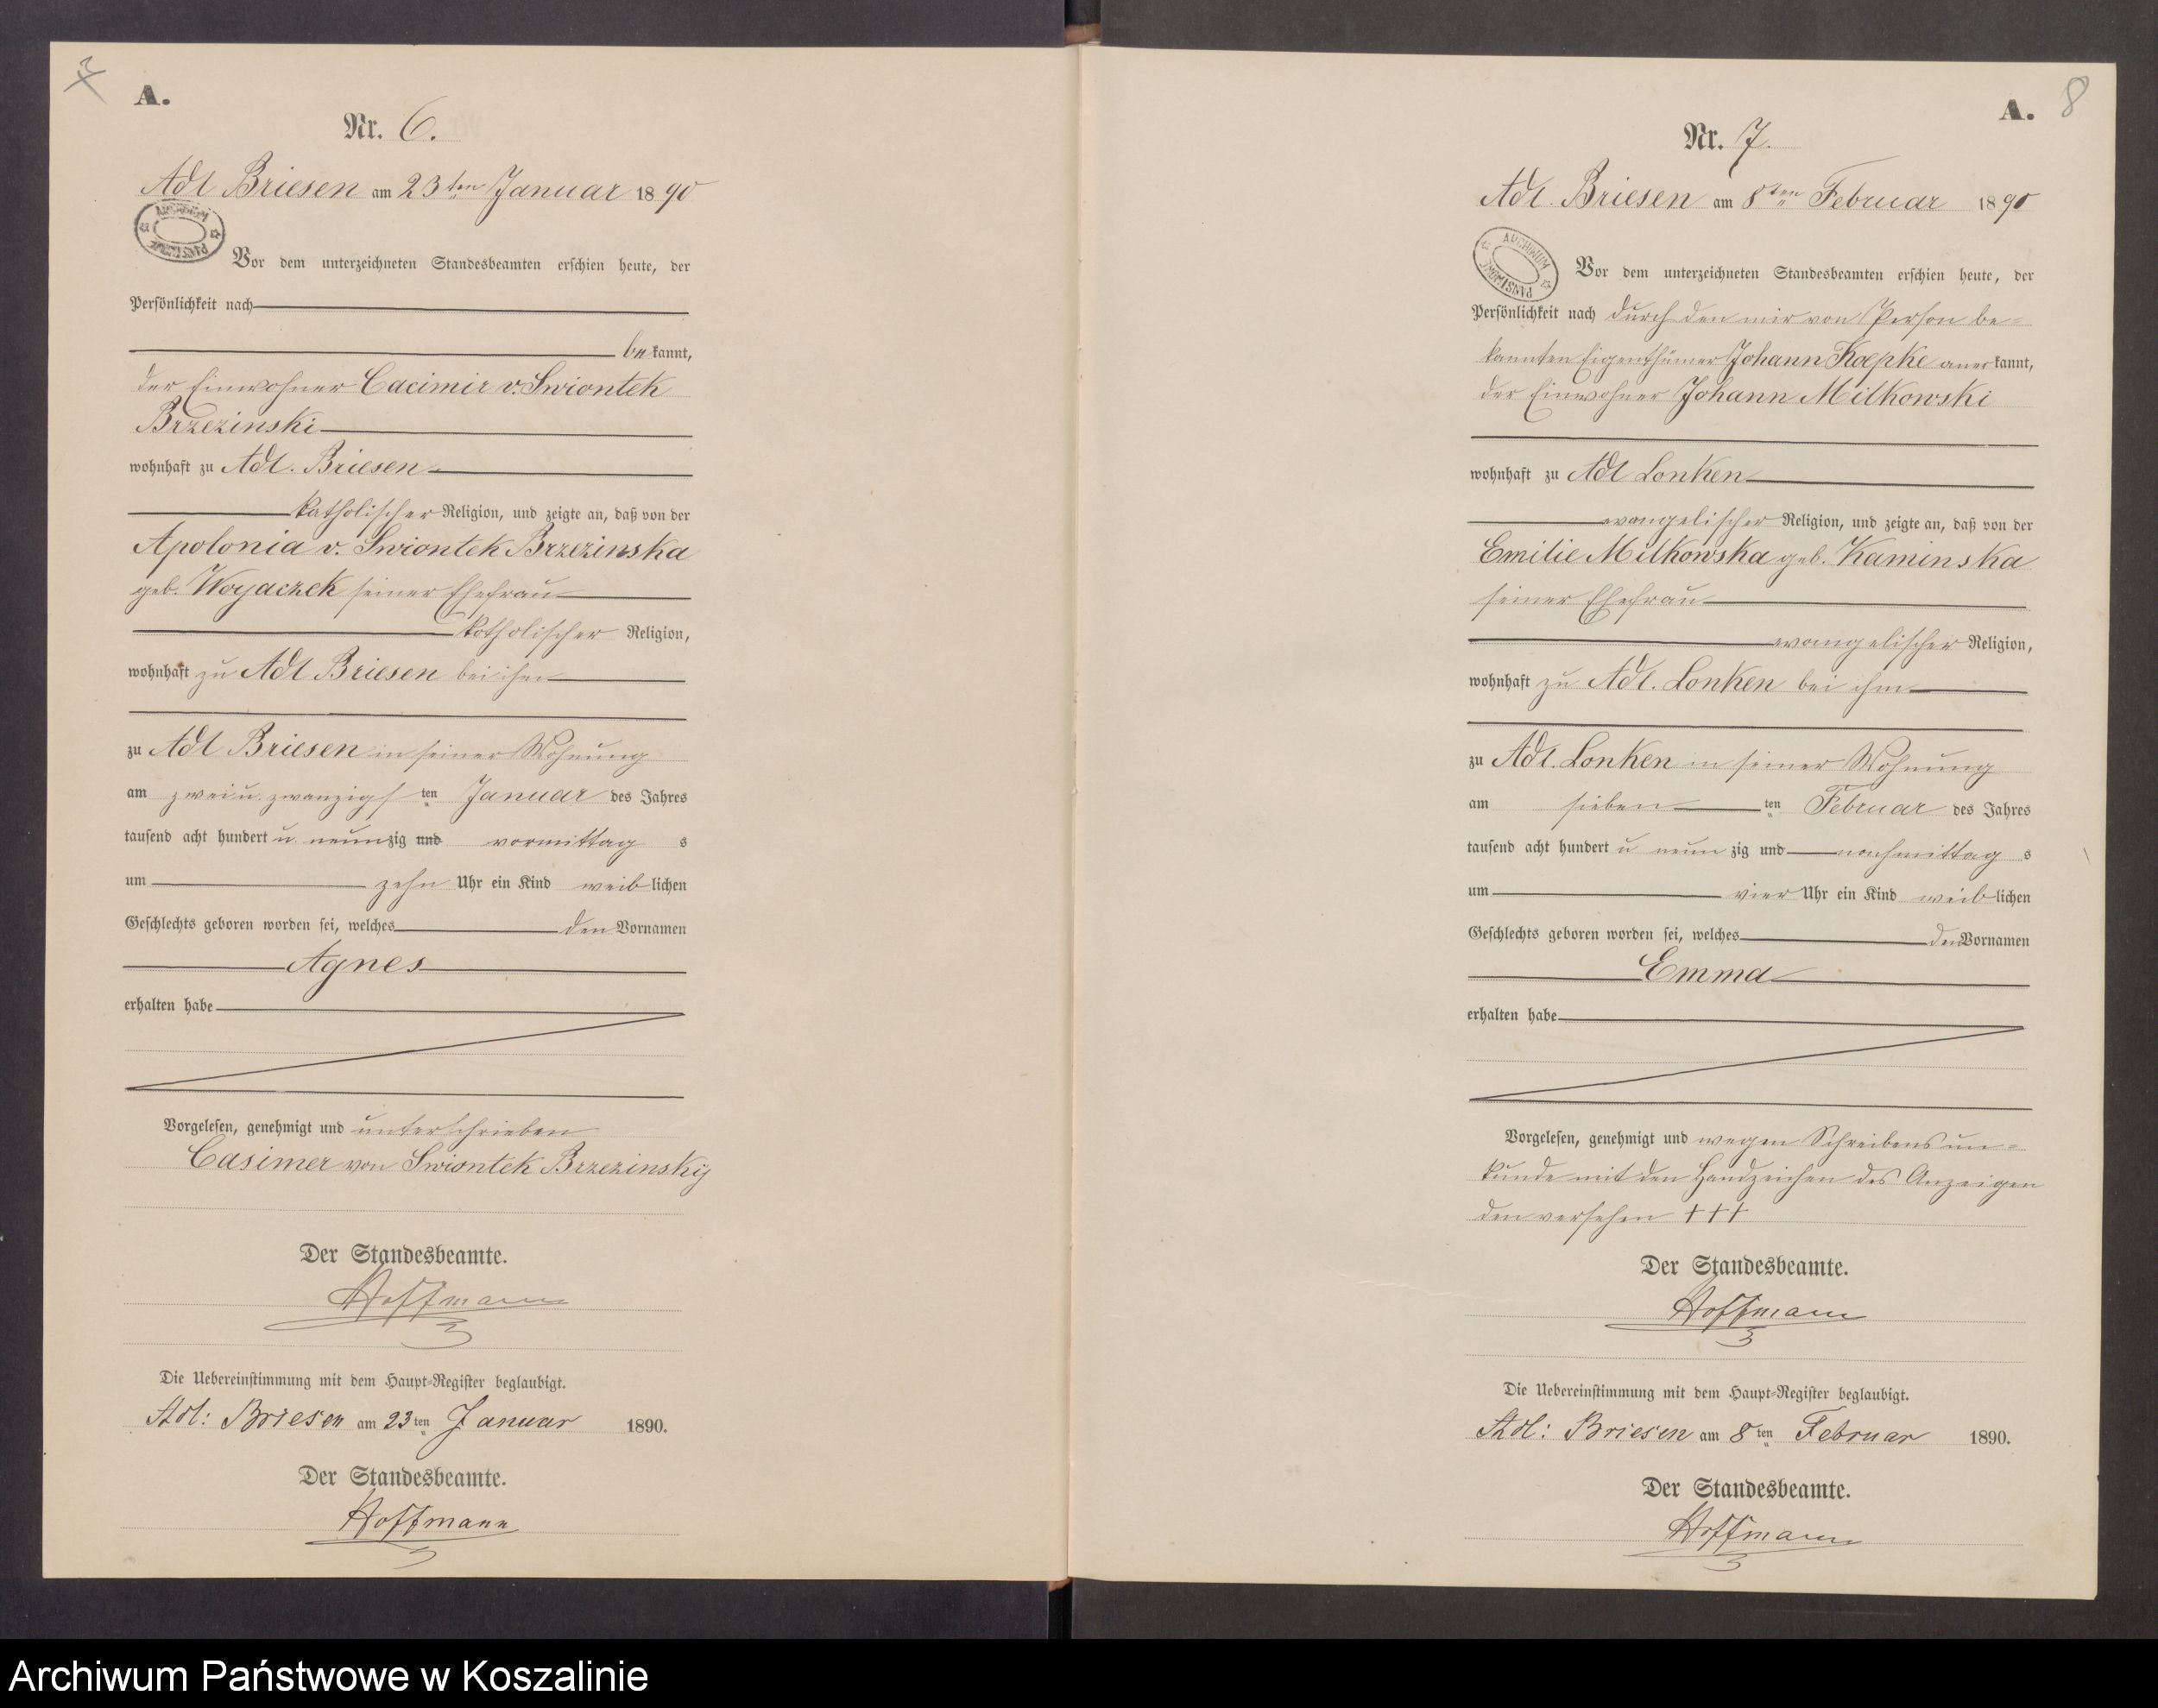 A.
Nr. 6.
Adl Briesen am 23ten Januar 1890
ARCHIWUM PAŃSTWOWE
Vor dem unterzeichneten Standesbeamten erschien heute, der
Persönlichkeit nach
bekannt,
der Einwohner Cacimir v. Swiontek
Brzezinski
wohnhaft zu Adl. Briesen
katholischer Religion, und zeigte an, daß von der
Apolonia v. Swiontek Brzezinska
geb. Woyaczek seiner Ehefrau
katholischer Religion,
wohnhaft zu Adl Briesen bei ihm
zu Adl Briesen in seiner Wohnung
am zwei u. zwanzigsten Januar des Jahres
tausend acht hundert u. neunzig und vormittags
um zehn Uhr ein Kind weiblichen
Geschlechts geboren worden sei, welches den Vornamen
Agnes
erhalten habe
Vorgelesen, genehmigt und unterschrieben
Casimer von Swiontek Brzezinskij
Der Standesbeamte.
Hoffmann
Die Uebereinstimmung mit dem Haupt-Register beglaubigt.
Adl: Briesen am 23ten Januar 1890.
Der Standesbeamte.
Hoffmann
A. 8
Nr. 7.
Adl. Briesen am 8ten Februar 1890
ARCHIWUM PAŃSTWOWE
Vor dem unterzeichneten Standesbeamten erschien heute, der
Persönlichkeit nach durch den mir von Person be-
kannten Eigenthümer Johann Koepke anerkannt,
der Einwohner Johann Milkowski
wohnhaft zu Adl Lonken
evangelischer Religion, und zeigte an, daß von der
Emilie Milkowska geb. Kaminska
seiner Ehefrau
evangelischer Religion,
wohnhaft zu Adl. Lonken bei ihm
zu Adl. Lonken in seiner Wohnung
am siebenten Februar des Jahres
tausend acht hundert u neunzig und nachmittags
um vier Uhr ein Kind weiblichen
Geschlechts geboren worden sei, welches den Vornamen
Emma
erhalten habe
Vorgelesen, genehmigt und wegen Schreibensun-
kunde mit den Handzeichen des Anzeigen
den versehen +++
Der Standesbeamte.
Hoffmann
Die Uebereinstimmung mit dem Haupt-Register beglaubigt.
Adl: Briesen am 8ten Februar 1890.
Der Standesbeamte.
Hoffmann
Archiwum Państwowe w Koszalinie